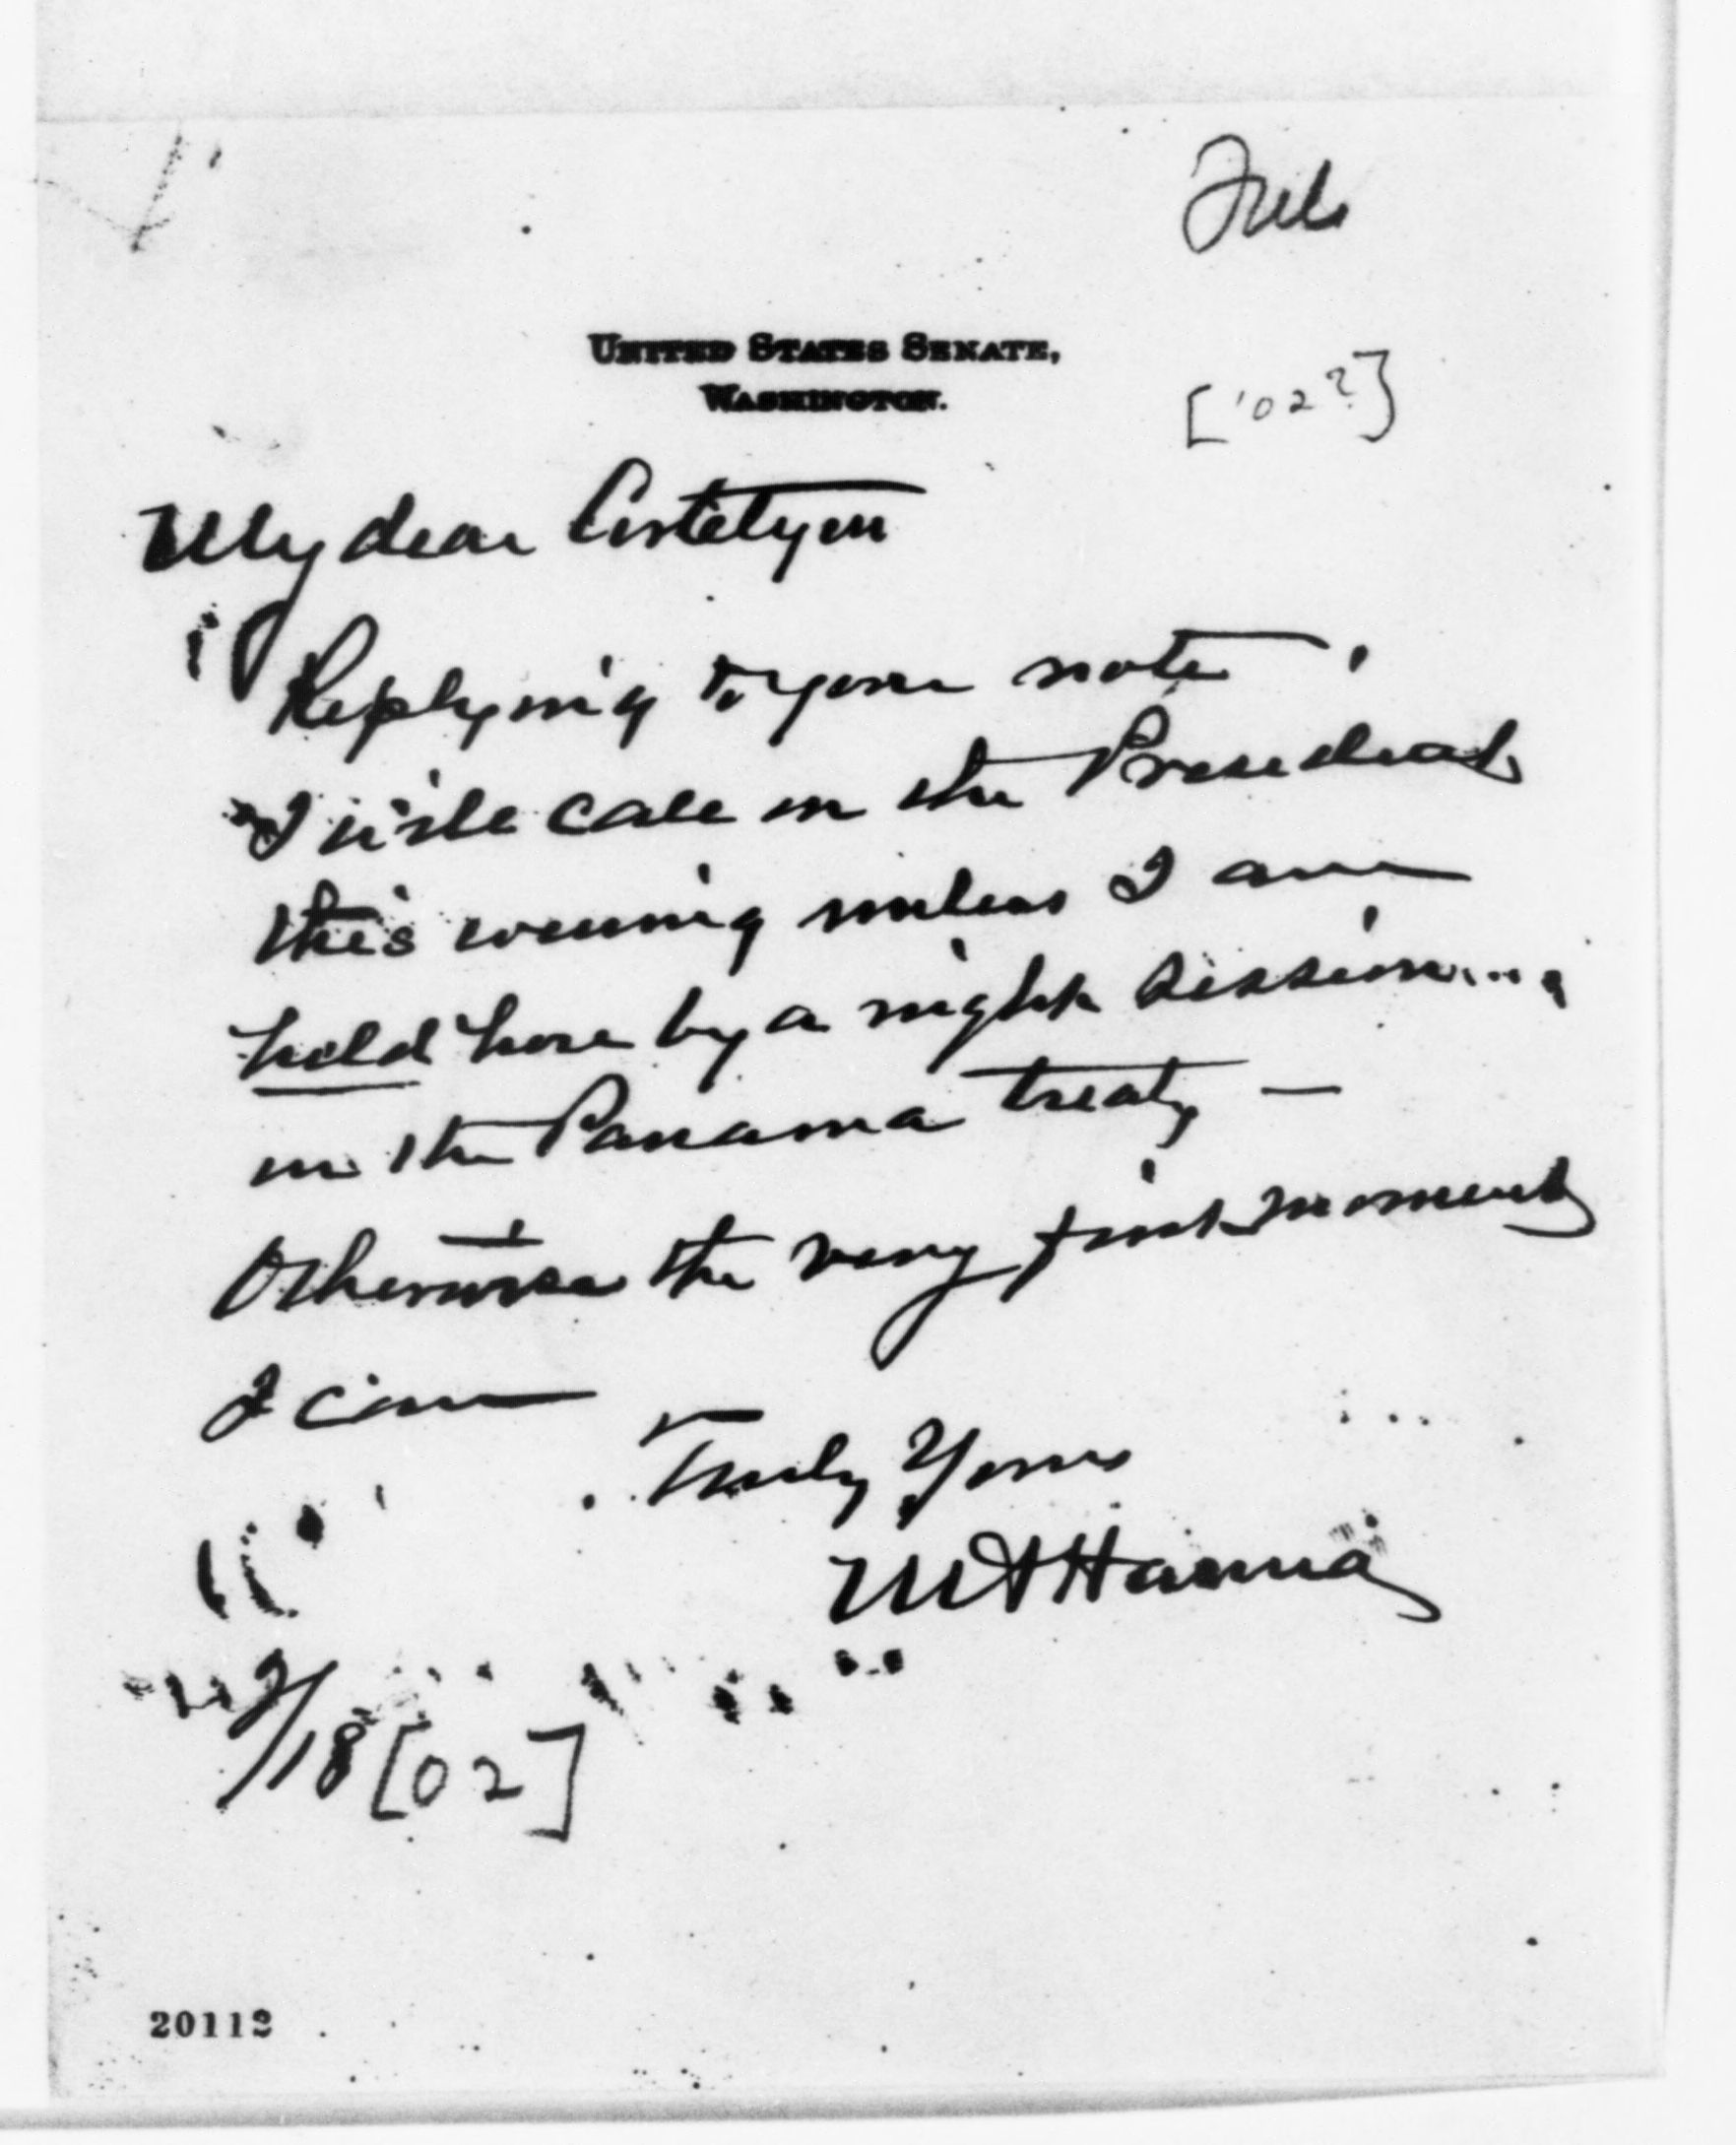 Feb
UNITED STATES SENATE,
WASHINGTON.
['02?]
My dear Cortelyou
Replying to your note,
I will call on the President
this evening unless I am
held here by a night session
on the Panama treaty —
Otherwise the very first moment
I can
Truly Yours
MAHanna
2/18 [02]
20112